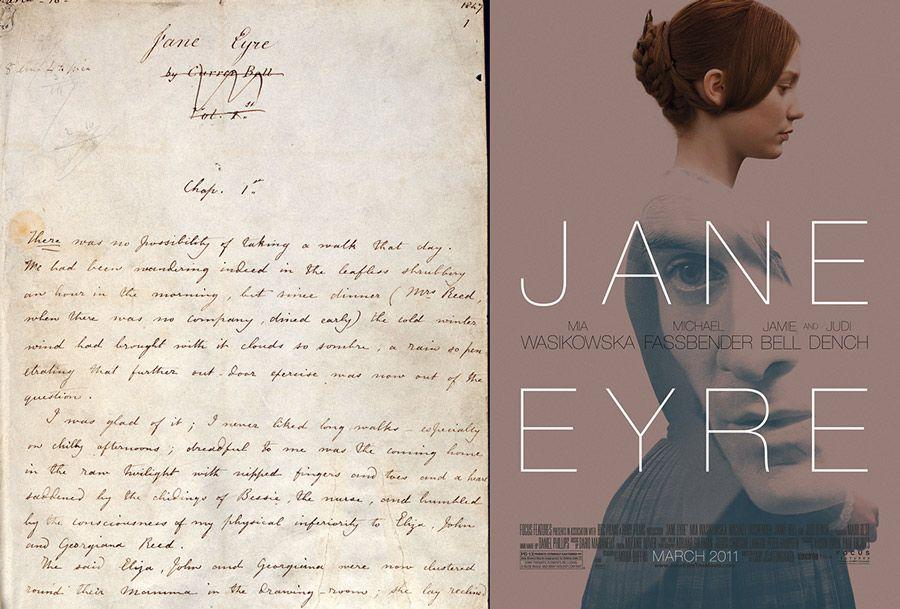 1847
1
Jane Eyre
by Currer Bell
Vol. 1.st
Chap. 1.st
There was no possibility of taking a walk that day.
We had been wandering indeed in the leafless shrubbery
an hour in the morning, but since dinner (Mrs Reed,
when there was no company, dined early) the cold winter
wind had brought with it clouds so sombre, a rain so pen-
etrating that further out-door exercise was now out of the
question.
I was glad of it; I never liked long walks - especially
on chilly afternoons; dreadful to me was the coming home
in the raw twilight with nipped fingers and toes and a heart
saddened by the chidings of Bessie, the nurse, and humbled
by the consciousness of my physical inferiority to Eliza, John
and Georgiana Reed.
The said Eliza, John and Georgiana were now clustered
round their Mamma in the drawing-room; she lay reclined
JANE
MIA WASIKOWSKA
MICHAEL FASSBENDER
JAMIE BELL AND JUDI DENCH
EYRE
MARCH 2011
FOCUS